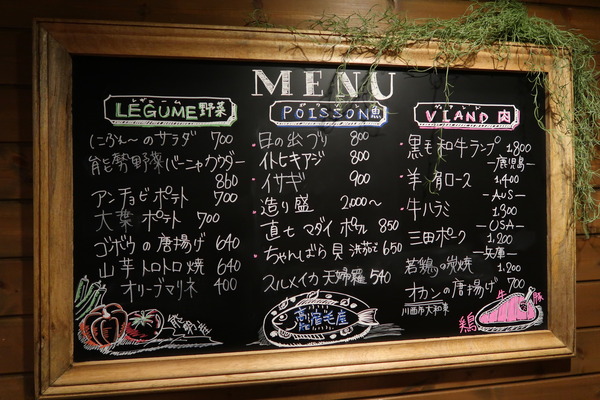 MENU
レギューム
LEGUME 野菜
のサラダ 700
能勢野菜バーニャカウダー
860
アンチョビポテト 700
大葉ポテト 700
ゴボウの唐揚げ 640
山芋トロトロ焼 640
オリーブマリネ 400
POISSON 魚
日の出づり 800
イトヒキアジ 800
イサギ 900
造り盛 2,000〜
直七マダイ ポワレ 850
ちゃんばら貝 650
スルメイカ天婦羅 540
VIAND 肉
黒毛和牛ランプ 1,800
—鹿児島—
羊肩ロース 1,400
—AUS—
牛ハラミ 1,300
—USA—
三田ポーク 1,200
—兵庫—
若鶏の炭焼 1,200
オカンの唐揚げ 700
川西市大和東
鶏
牛
豚